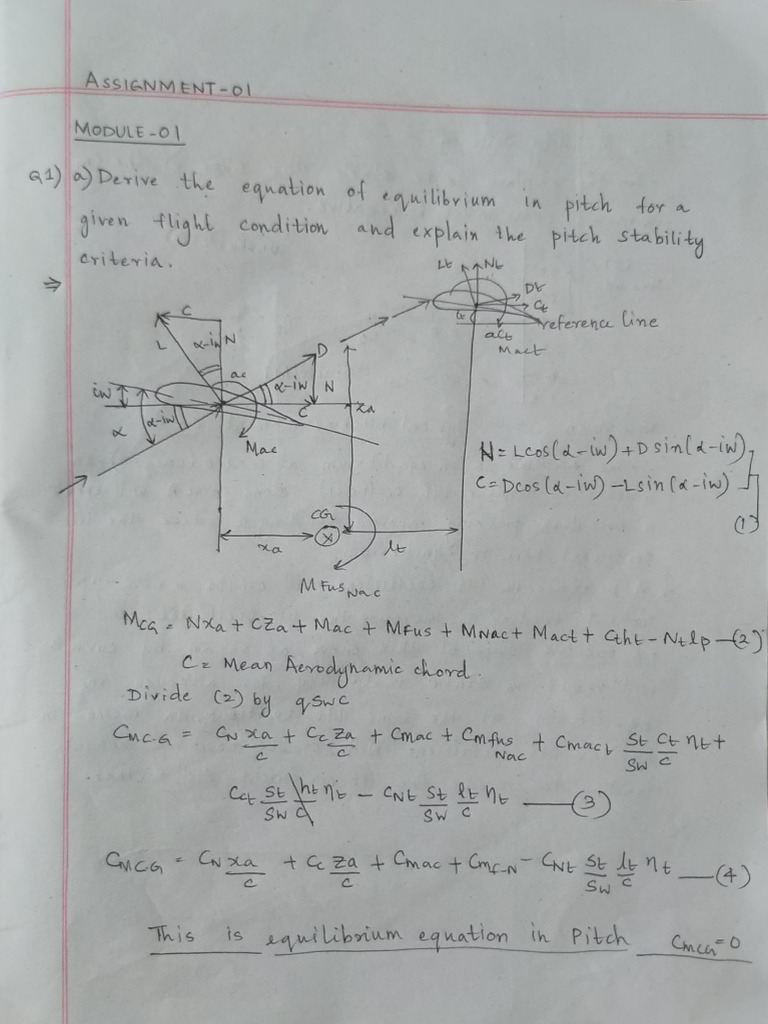 ASSIGNMENT-01
MODULE-01
Q1) a) Derive the equation of equilibrium in pitch for a
given flight condition and explain the pitch stability
criteria.
⇒
Lt Nt
Dt
Ct
reference line
it
act
Mact
C
L α-iw N
ac
D
α-iw N
C
za
iw
α
α-iw
Mac
N = Lcos(α-iw) + D sin(α-iw)
C = Dcos(α-iw) - Lsin(α-iw)
(1)
xa
CG
X
lt
MFusNac
MCG = Nxa + CZa + Mac + MFus + MNac + Mact + Ctht - Ntlp —(2)
C = Mean Aerodynamic chord.
Divide (2) by qSwC
CMC.G = CN xa/c + Cc za/c + Cmac + CmfusNac + Cmact St/Sw Ct/c ηt +
Cct St/Sw ht/c ηt - CNt St/Sw lt/c ηt —(3)
CMCG = CN xa/c + Cc za/c + Cmac + Cmf-N - CNt St/Sw lt/c ηt —(4)
This is equilibrium equation in Pitch CmCG=0